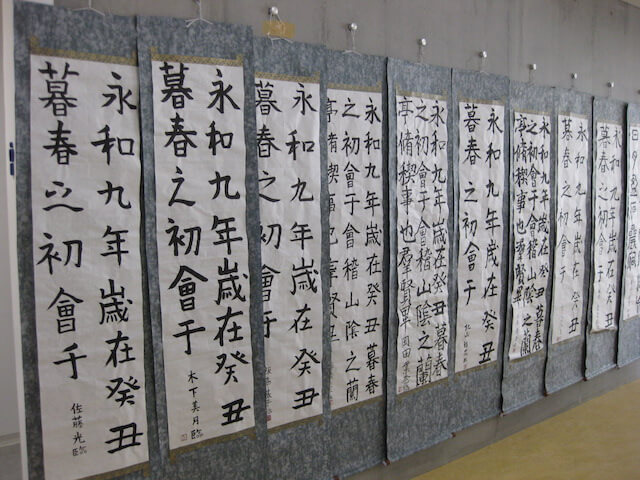 永和九年歳在癸丑
暮春之初會于
佐藤光臨
永和九年歳在癸丑
暮春之初會于
木下美月臨
永和九年歳在癸丑
暮春之初會于
永和九年歳在癸丑暮春
之初會于會稽山陰之蘭
亭脩禊事也羣賢畢
永和九年歳在癸丑暮春
之初會于會稽山陰之蘭
亭脩禊事也羣賢畢
永和九年歳在癸丑
暮春之初會于
永和九年歳在癸丑暮春
之初會于會稽山陰之蘭
亭脩禊事也羣賢畢
永和九年歳在癸丑
暮春之初會于
永和九年歳在癸丑
暮春之初會于